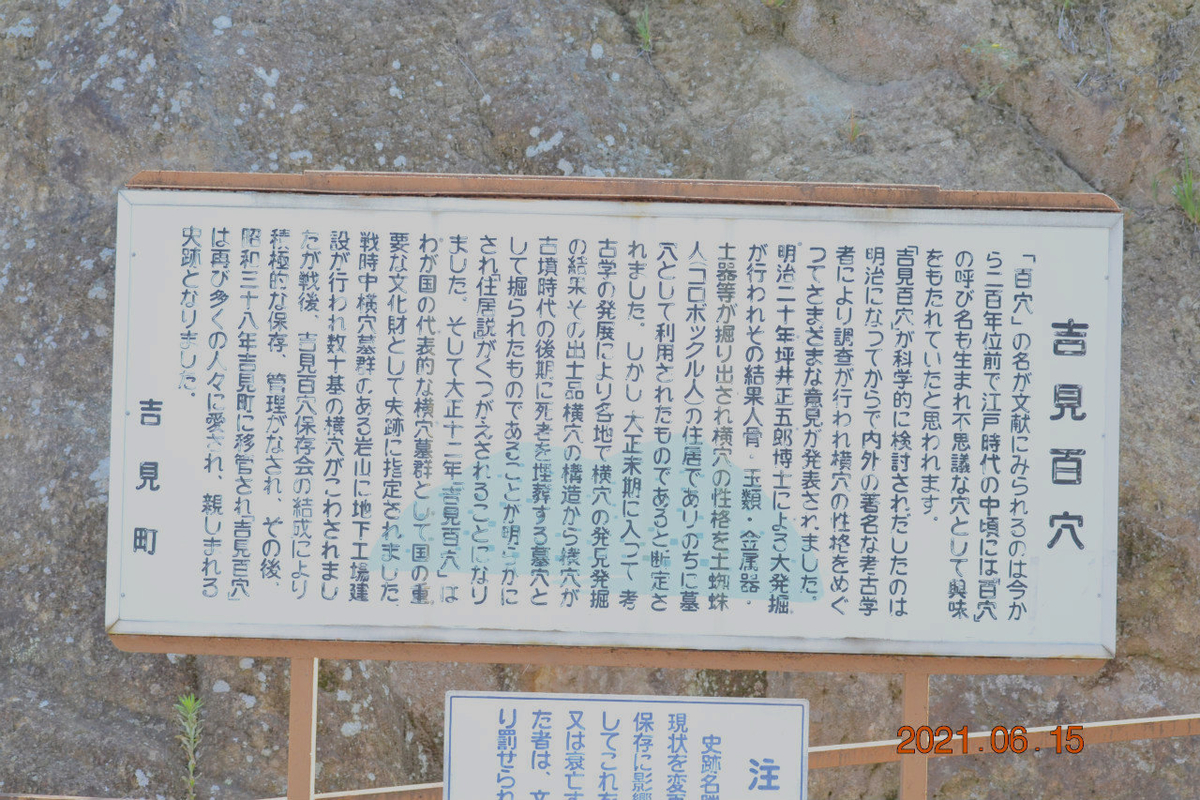 吉見百穴
「百穴」の名が文献にみられるのは今か
ら二百年位前で江戸時代の中頃には「百穴」
の呼び名も生まれ不思議な穴として興味
をもたれていたと思われます。
「吉見百穴」が科学的に検討されだしたのは
明治になってからで内外の著名な考古学
者により調査が行われ横穴の性格をめぐ
ってさまざまな意見が発表されました。
明治二十年坪井正五郎博士による大発掘
が行われその結果人骨・玉類・金属器・
土器等が掘り出され横穴の性格を土蜘蛛
人(コロボックル人)の住居でありのちに墓
穴として利用されたものであると断定さ
れました。しかし大正末期に入って考
古学の発展により各地で横穴の発見発掘
の結果その出土品横穴の構造から横穴が
古墳時代の後期に死者を埋葬する墓穴と
して掘られたものであることが明らかに
され「住居説」がくつがえされることになり
ました。そして大正十二年「吉見百穴」は
わが国の代表的な横穴墓群として国の重
要な文化財として史跡に指定されました。
戦時中横穴墓群のある岩山に地下工場建
設が行われ数十基の横穴がこわされまし
たが戦後、吉見百穴保存会の結成により
積極的な保存、管理がなされ、その後、
昭和三十八年吉見町に移管され「吉見百穴」
は再び多くの人々に愛され、親しまれる
史跡となりました。
吉見町
注
史跡名勝
現状を変更
保存に影響
してこれを
又は衰亡す
た者は、文
り罰せられ
2021.06.15